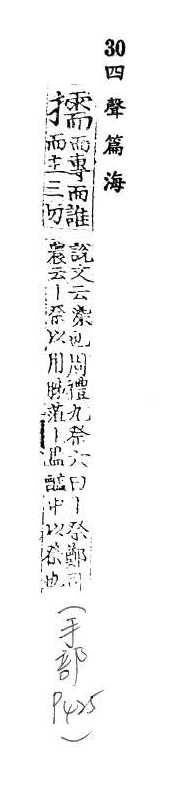 30 四聲篇海
擩 而專而誰
而主三切
說文云染也周禮九祭六曰丨祭鄭司
農云丨祭以肝肺葅丨鹽醢中以祭也
（手部
P425）